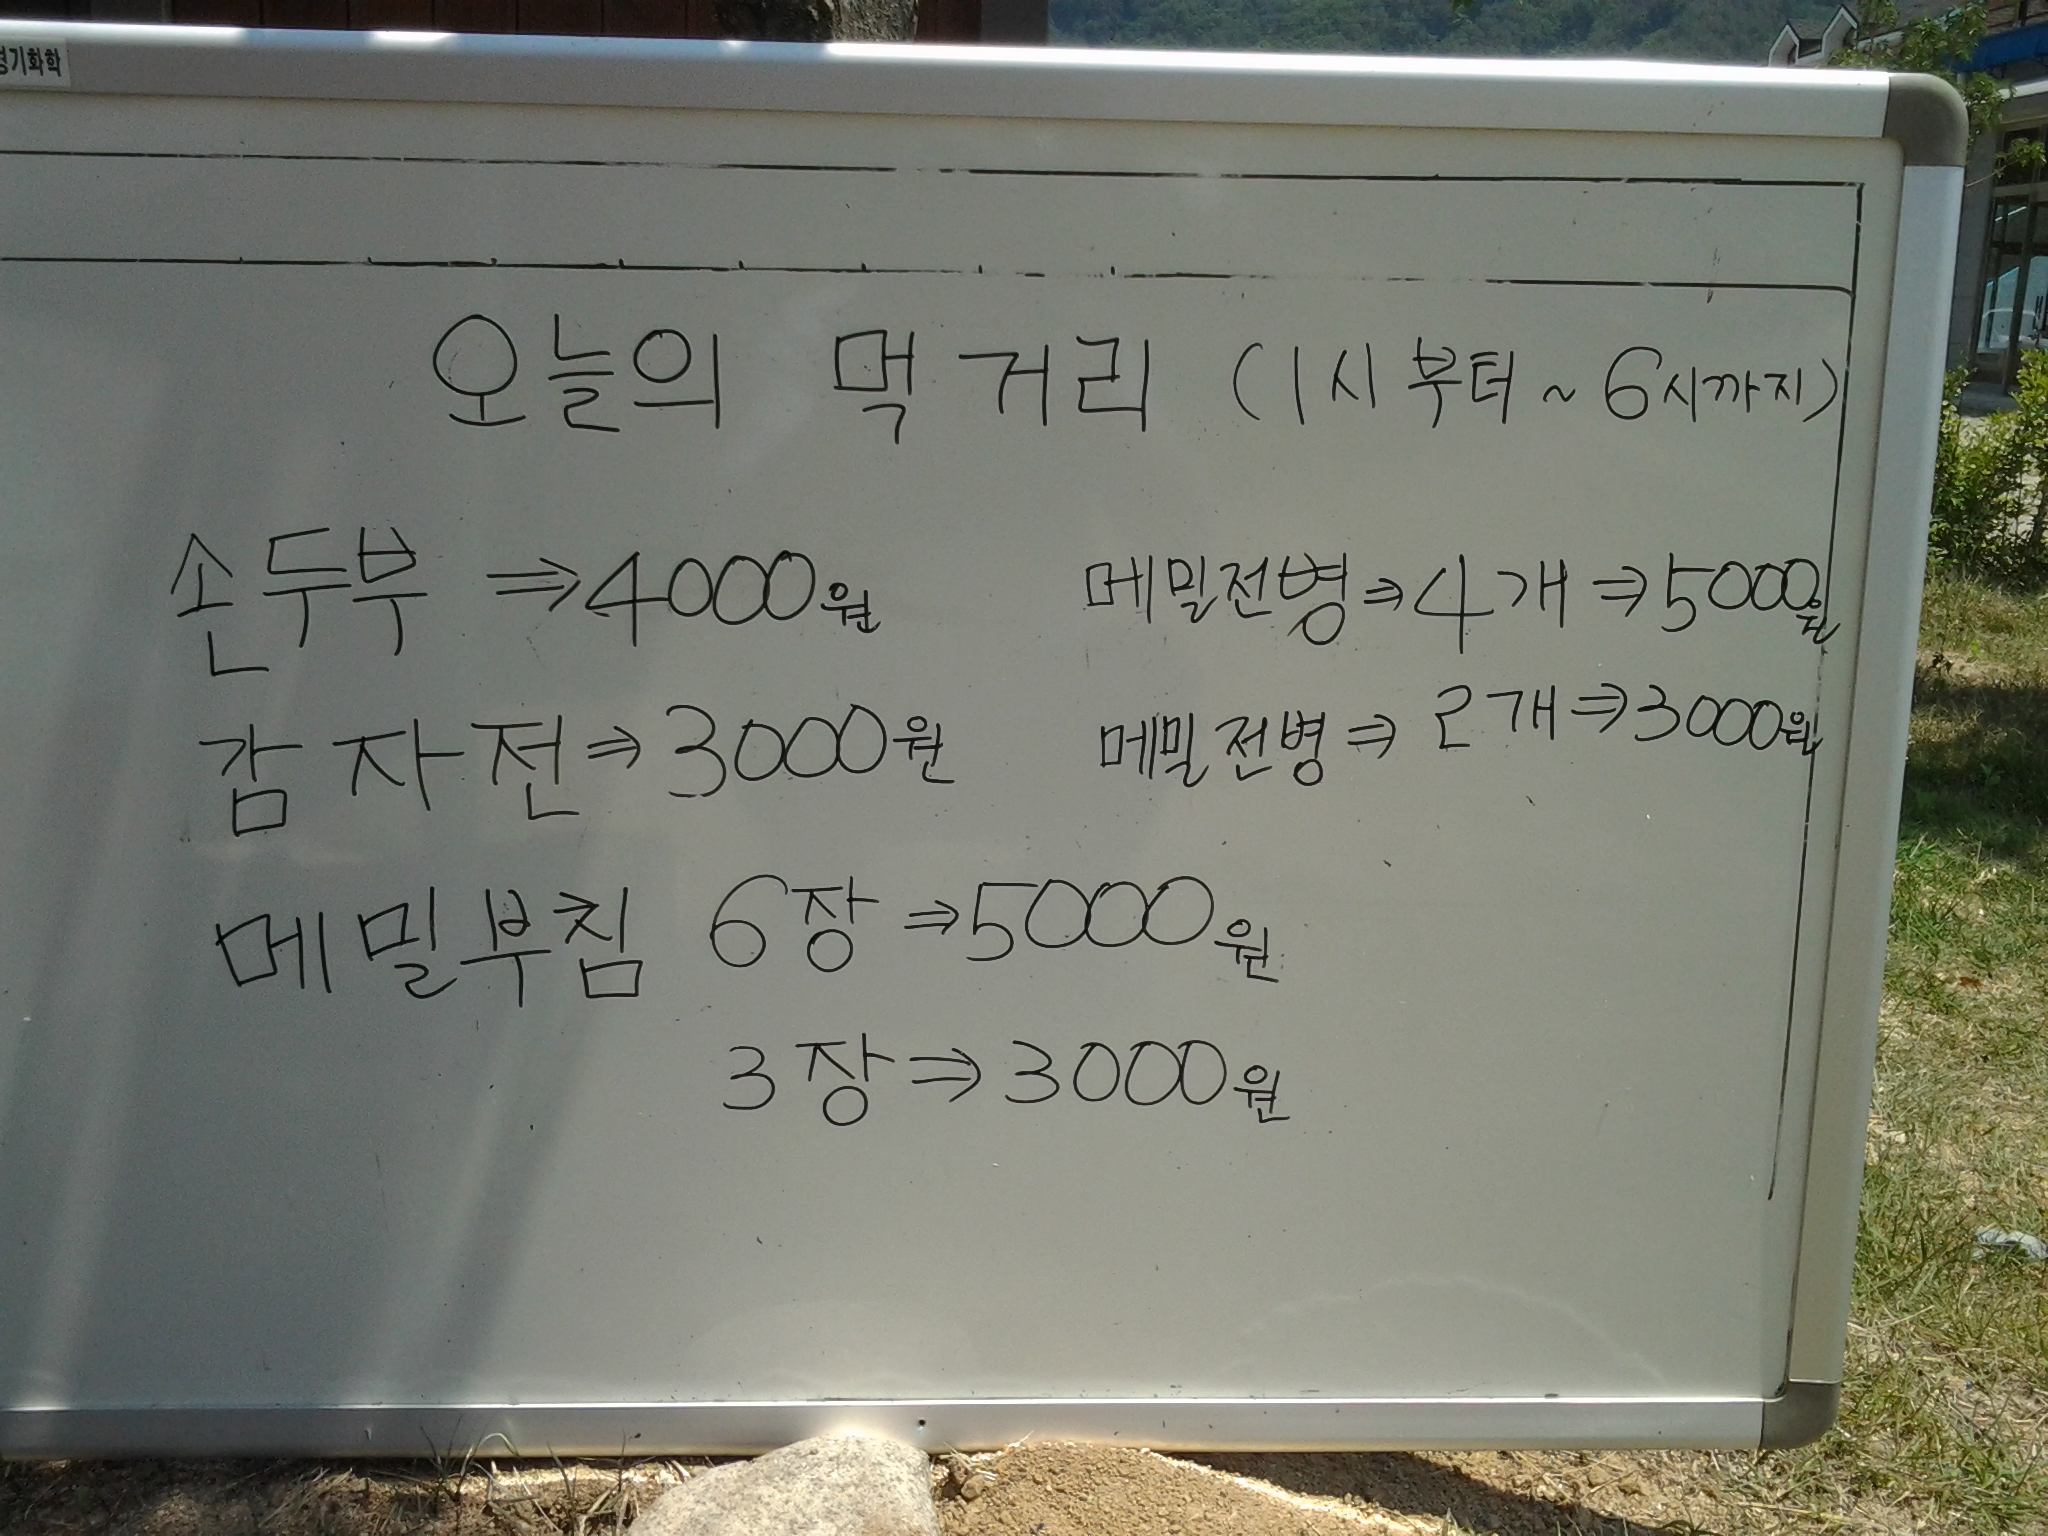 경기화학
오늘의 먹거리 (1시부터 ~ 6시까지)
손두부 ⇒ 4000원
감자전 ⇒ 3000원
메밀부침 6장 ⇒ 5000원
3장 ⇒ 3000원
메밀전병 ⇒ 4개 ⇒ 5000원
메밀전병 ⇒ 2개 ⇒ 3000원